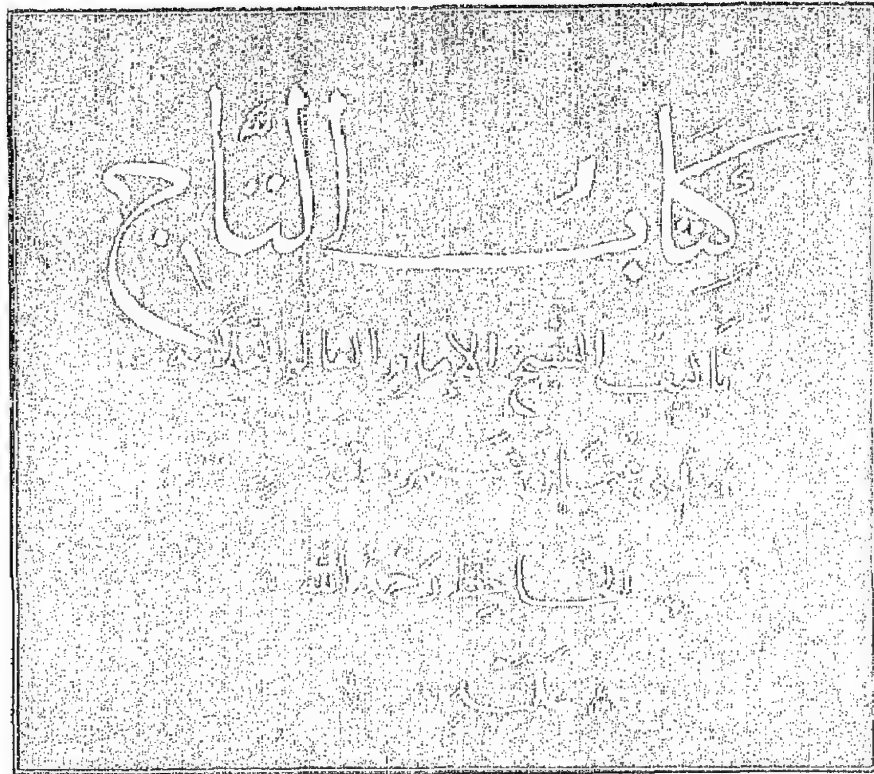 كِتَابُ التَّاج
تأليف الشيخ الإمام العالم العلامة
ابى عثمان عمرو
الجاحظ رحمه الله